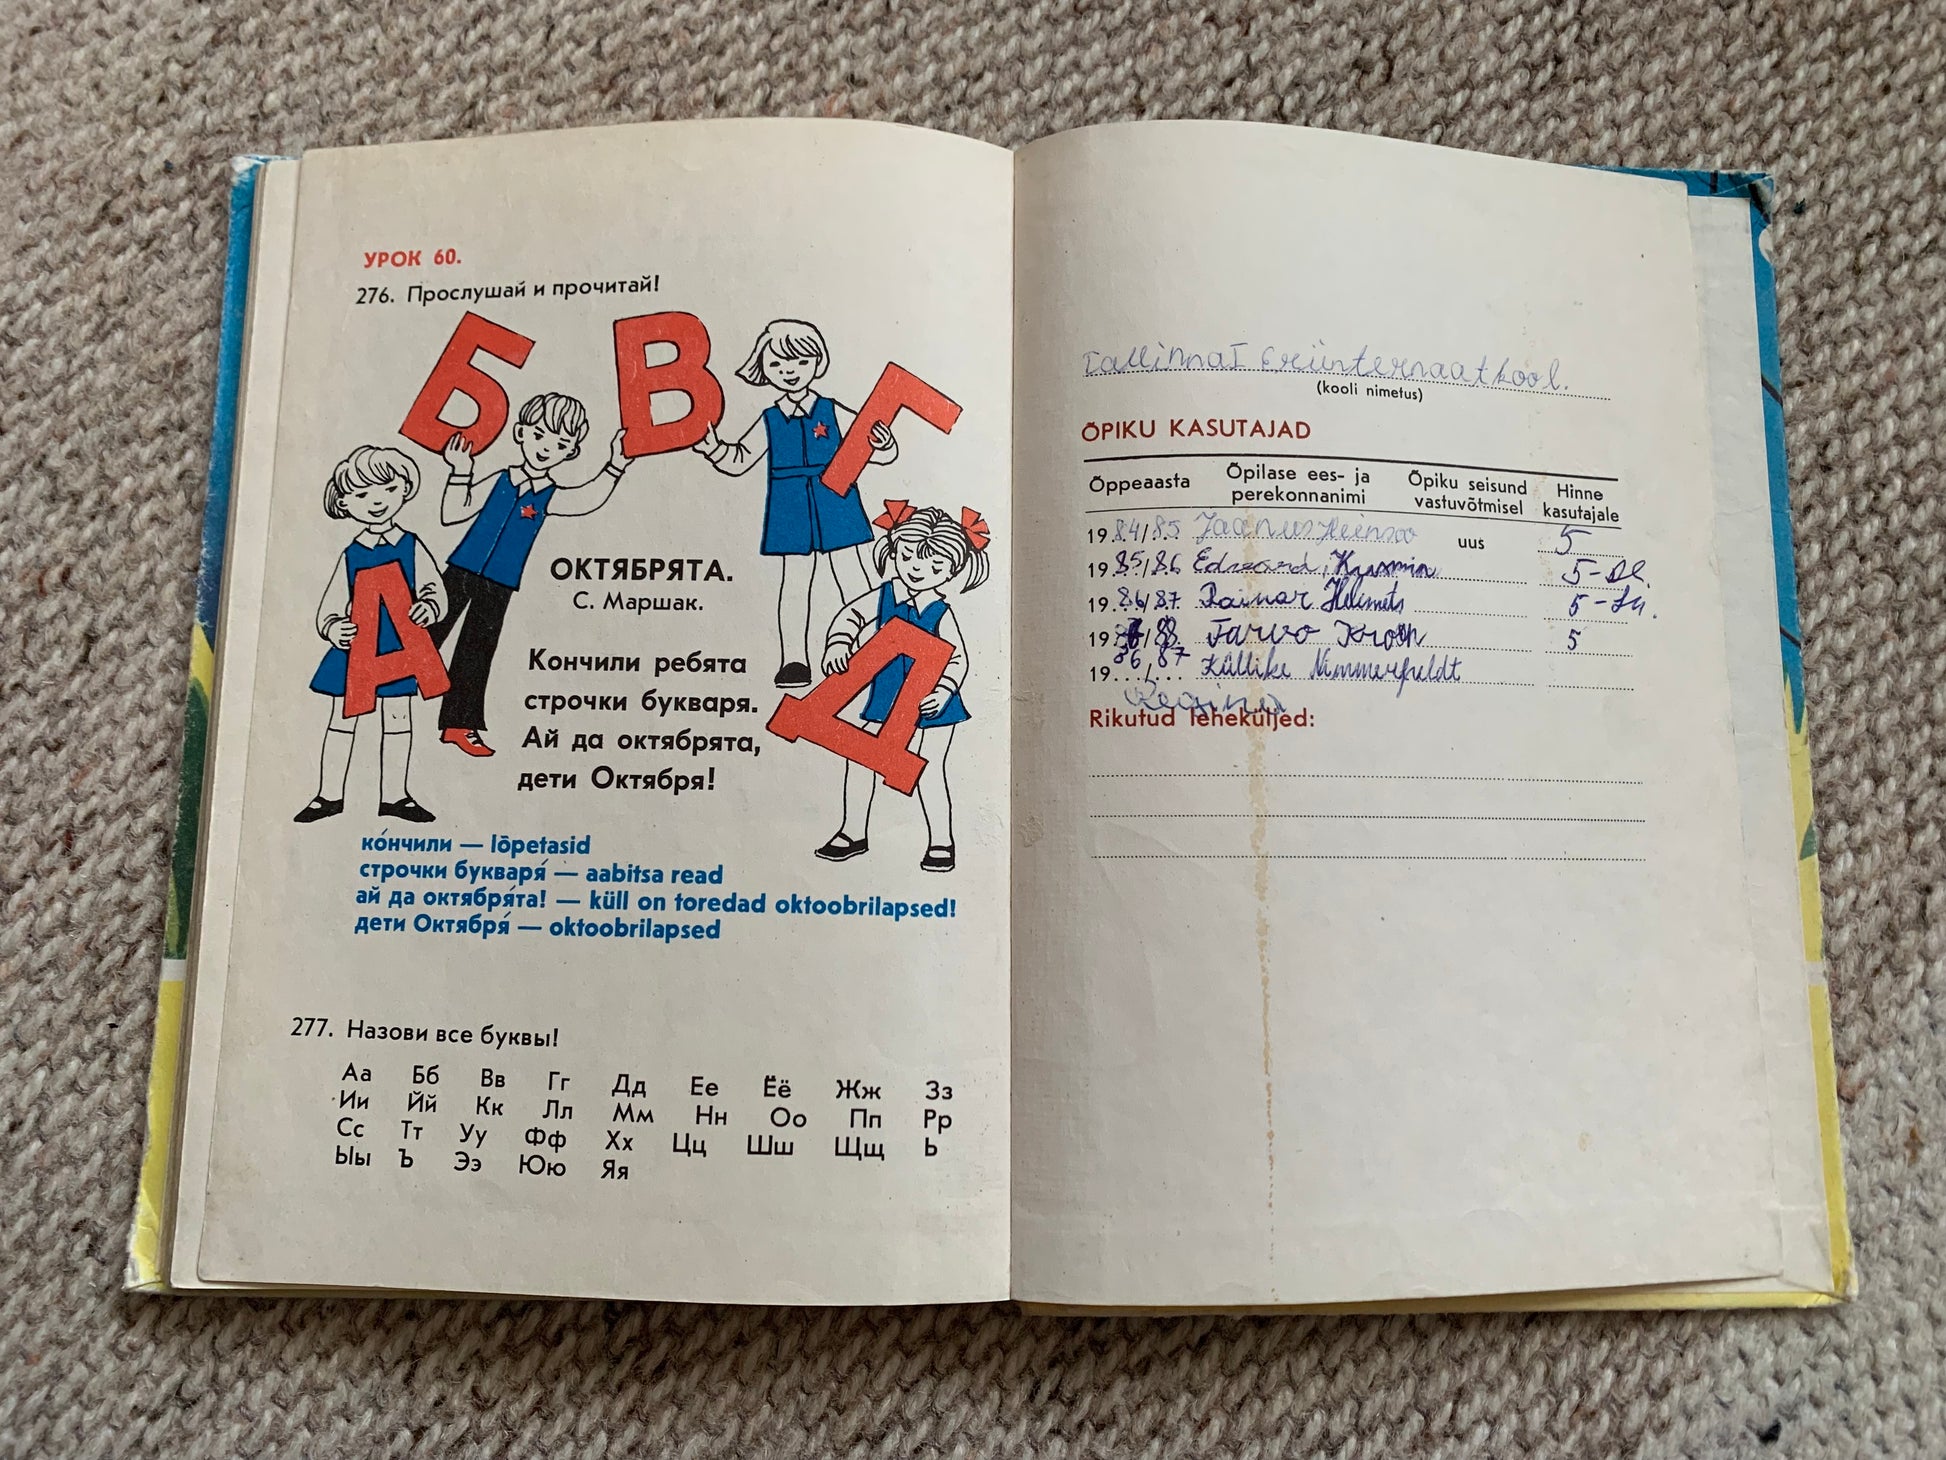 УРОК 60.
276. Прослушай и прочитай!
Б В Г
А Д
ОКТЯБРЯТА.
С. Маршак.
Кончили ребята
строчки букваря.
Ай да октябрята,
дети Октября!
ко́нчили — lõpetasid
строчки букваря́ — aabitsa read
ай да октября́та! — küll on toredad oktoobrilapsed!
дети Октября́ — oktoobrilapsed
277. Назови все буквы!
Аа Бб Вв Гг Дд Ее Ёё Жж Зз
Ии Йй Кк Лл Мм Нн Оо Пп Рр
Сс Тт Уу Фф Хх Цц Шш Щщ Ь
Ыы Ъ Ээ Юю Яя
Tallinna I Eriinternaatkool.
(kooli nimetus)
ÕPIKU KASUTAJAD
Õppeaasta Õpilase ees- ja perekonnanimi Õpiku seisund vastuvõtmisel Hinne kasutajale
1984/85 Jaanus Heinsoo uus 5
1985/86 Edvard 5-
1986/87 Rainar Helmets 5-
19 /88 Tarvo Kroon 5
1986/87 Küllike Nimmerfeldt
Regina
Rikutud leheküljed: